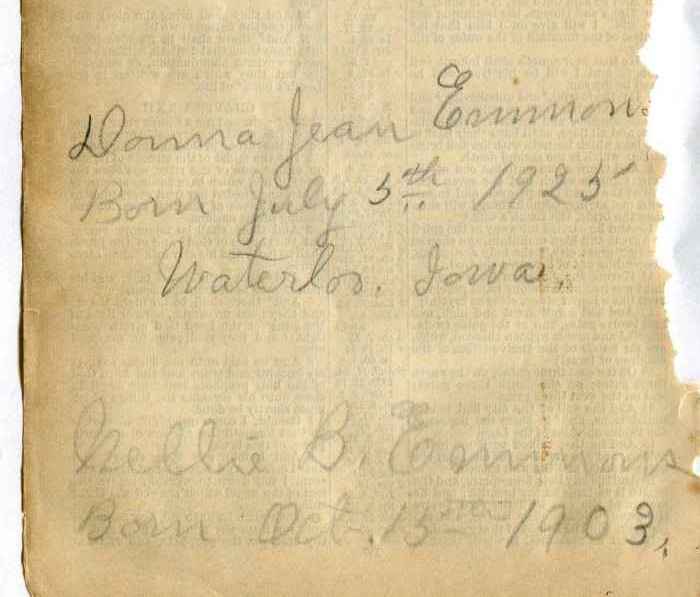 Donna Jean Emmon
Born July 5th 1925
Waterloo. Iowa.
Nellie B. Emmons
Born Oct. 15th 1903.